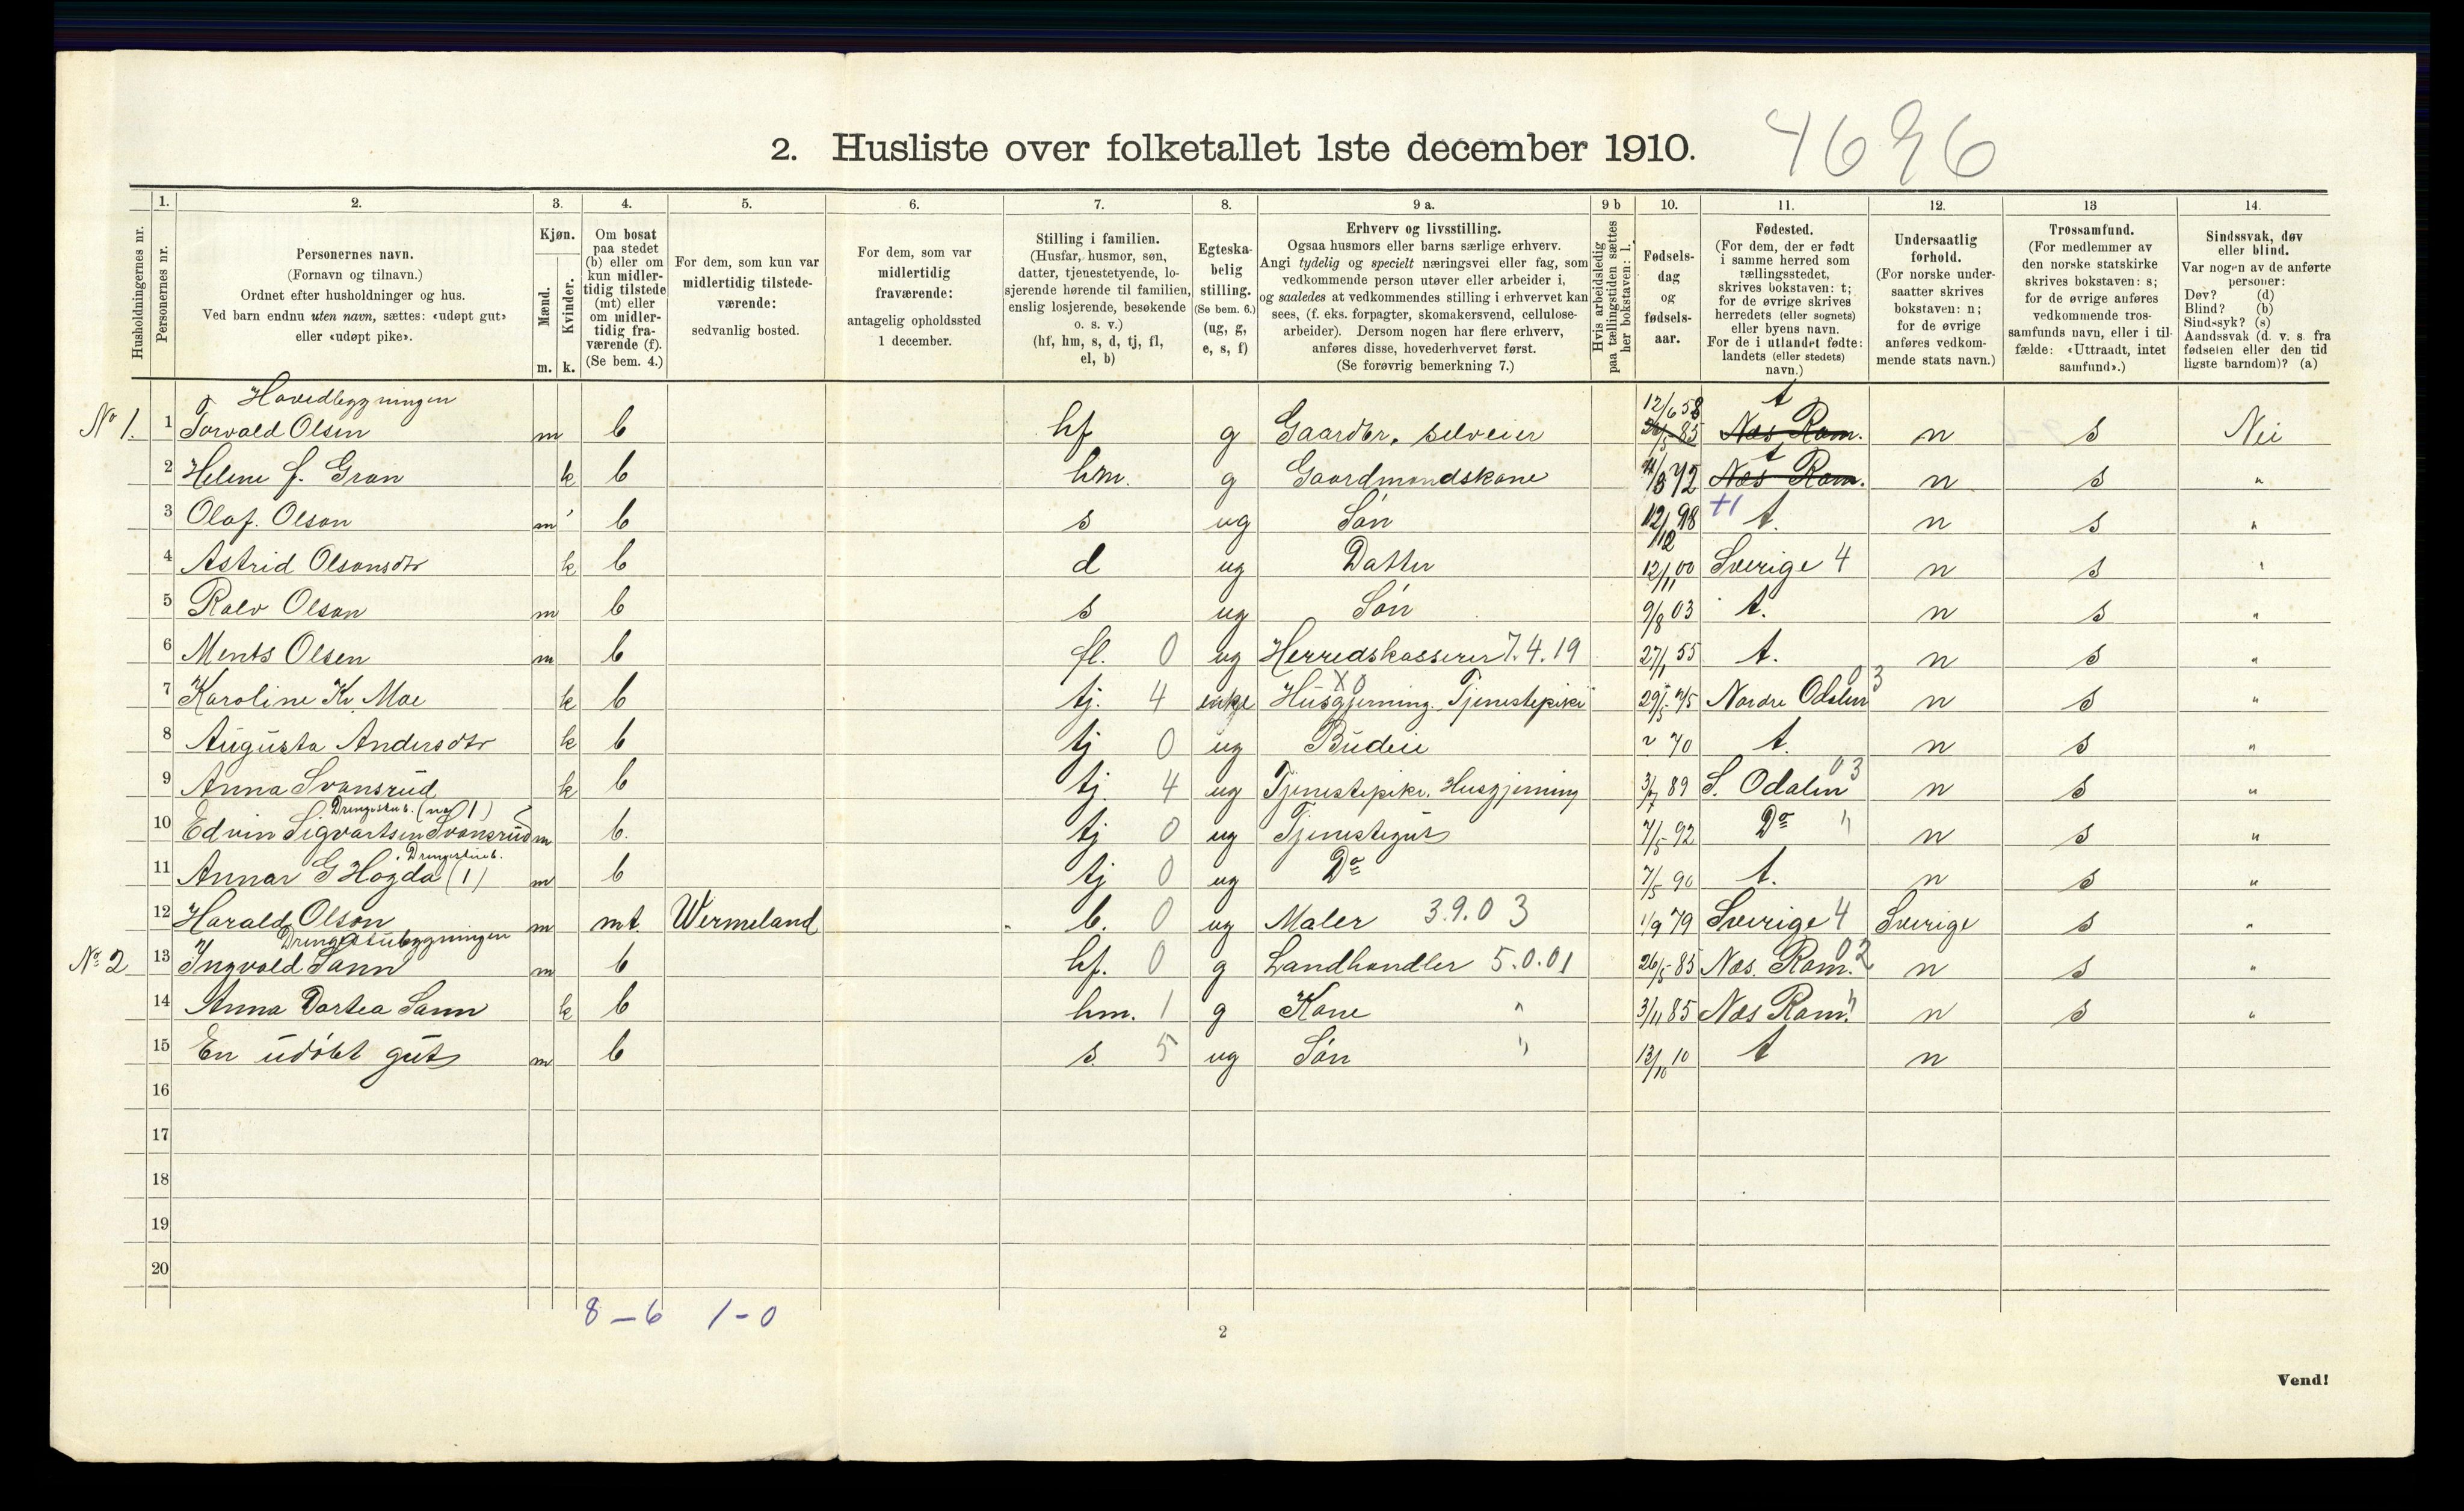 2. Husliste over folketallet 1ste december 1910.
4696
1. 2. 3. 4. 5. 6. 7. 8. 9 a. 9 b 10. 11. 12. 13 14.
Husholdningernes nr.
Personernes nr.
Personernes navn.
(Fornavn og tilnavn.)
Ordnet efter husholdninger og hus.
Ved barn endnu uten navn, sættes: «udøpt gut»
eller «udøpt pike».
Kjøn.
Mænd.
Kvinder.
m. k.
Om bosat
paa stedet
(b) eller om
kun midler-
tidig tilstede
(mt) eller
om midler-
tidig fra-
værende (f).
(Se bem. 4.)
For dem, som kun var
midlertidig tilstede-
værende:
sedvanlig bosted.
For dem, som var
midlertidig
fraværende:
antagelig opholdssted
1 december.
Stilling i familien.
(Husfar, husmor, søn,
datter, tjenestetyende, lo-
sjerende hørende til familien,
enslig losjerende, besøkende
o. s. v.)
(hf, hm, s, d, tj, fl,
el, b)
Egteska-
belig
stilling.
(Se bem. 6.)
(ug, g,
e, s, f)
Erhverv og livsstilling.
Ogsaa husmors eller barns særlige erhverv.
Angi tydelig og specielt næringsvei eller fag, som
vedkommende person utøver eller arbeider i,
og saaledes at vedkommendes stilling i erhvervet kan
sees, (f. eks. forpagter, skomakersvend, cellulose-
arbeider). Dersom nogen har flere erhverv,
anføres disse, hovederhvervet først.
(Se forøvrig bemerkning 7.)
Hvis arbeidsledig
paa tællingstiden sættes
her bokstaven: l.
Fødsels-
dag
og
fødsels-
aar.
Fødested.
(For dem, der er født
i samme herred som
tællingsstedet,
skrives bokstaven: t;
for de øvrige skrives
herredets (eller sognets)
eller byens navn.
For de i utlandet fødte:
landets (eller stedets)
navn.)
Undersaatlig
forhold.
(For norske under-
saatter skrives
bokstaven: n;
for de øvrige
anføres vedkom-
mende stats navn.)
Trossamfund.
(For medlemmer av
den norske statskirke
skrives bokstaven: s;
for de øvrige anføres
vedkommende tros-
samfunds navn, eller i til-
fælde: «Uttraadt, intet
samfund».)
Sindssvak, døv
eller blind.
Var nogen av de anførte
personer:
Døv? (d)
Blind? (b)
Sindssyk? (s)
Aandssvak (d. v. s. fra
fødselen eller den tid
ligste barndom)? (a)
Hovedbygningen 12/6 58 t
No 1. 1 Torvald Olsen m b hf g Gaardbr. selveier 26/5 85 Næs, Rom. n s Nei
t
2 Helene J. Gran k b hm. g Gaardmandskone 72 Næs Rom. n s "
3 Olaf. Olson m b s ug Søn 12/12 98 t. n s "
4 Astrid Olsonsdtr k b d ug Datter 12/11 00 Sverige 4 n s "
5 Rolv Olson m b s ug Søn 9/8 03 t. n s "
6 Ments Olsen m b fl. 0 ug Herredskasserer 7.4.19 27/1 55 t. n s "
7 Karoline Kr. Moe k b tj. 4 enke Husgjerning. Tjenestepike Nordre Odalen 03 n s "
8 Augusta Andersdtr k b tj 0 ug Budeie 70 t. n s "
9 Anna Svansrud k b tj. 4 ug Tjenestepike, Husgjerning 3/7 89 S. Odalen 03 n s "
Drengestub. (no 1)
10 Edvin Sigvartsen Svansrud m b. tj 0 ug Tjenestegut 7/5 92 Do " n s "
Drengestueb.
11 Annar G Hogda (1) m b tj 0 ug Do 7/5 90 t. n s "
12 Harald Olson m mt. Wermeland b. 0 ug Maler 3.9.03 1/9 79 Sverige 4 Sverige s "
Drengestubygningen
No 2 13 Ingvald Sann m b hf. 0 g Landhandler 5.0.01 26/5 85 Næs. Rom. 02 n s "
14 Anna Dortea Sann k b hm. 1 g Kone " 3/11 85 Næs Rom. " n s "
15 En udøbt gut m b s. 5 ug Søn " 13/10 10 t n
16
17
18
19
20
8 – 6 1 – 0
2
Vend!